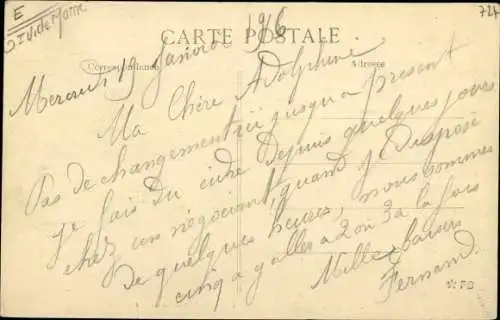 E
I.V. de Marne
724
CARTE POSTALE
Correspondance
Adresse
Mercredi 19 Janvier 1916
Ma Chère Adolphine
Pas de changement ici jusqu'a present
Je fais du cidre depuis quelques jours
chez un négociant, quand je dispose
de quelques heures, nous sommes
cinq a y aller a 2 ou 3 a la fois
Mille baisers
Fernand